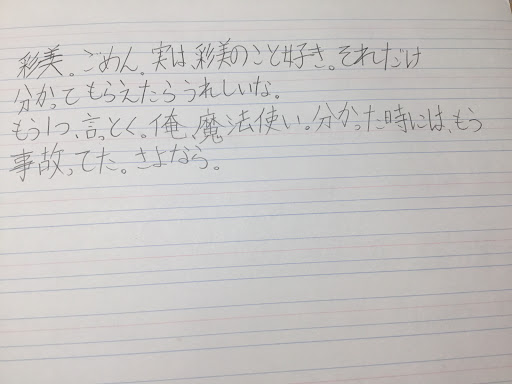 彩美。ごめん。実は、彩美のこと好き。それだけ
分かってもらえたらうれしいな。
もう1つ、言っとく。俺、魔法使い。分かった時には、もう
事故ってた。さよなら。